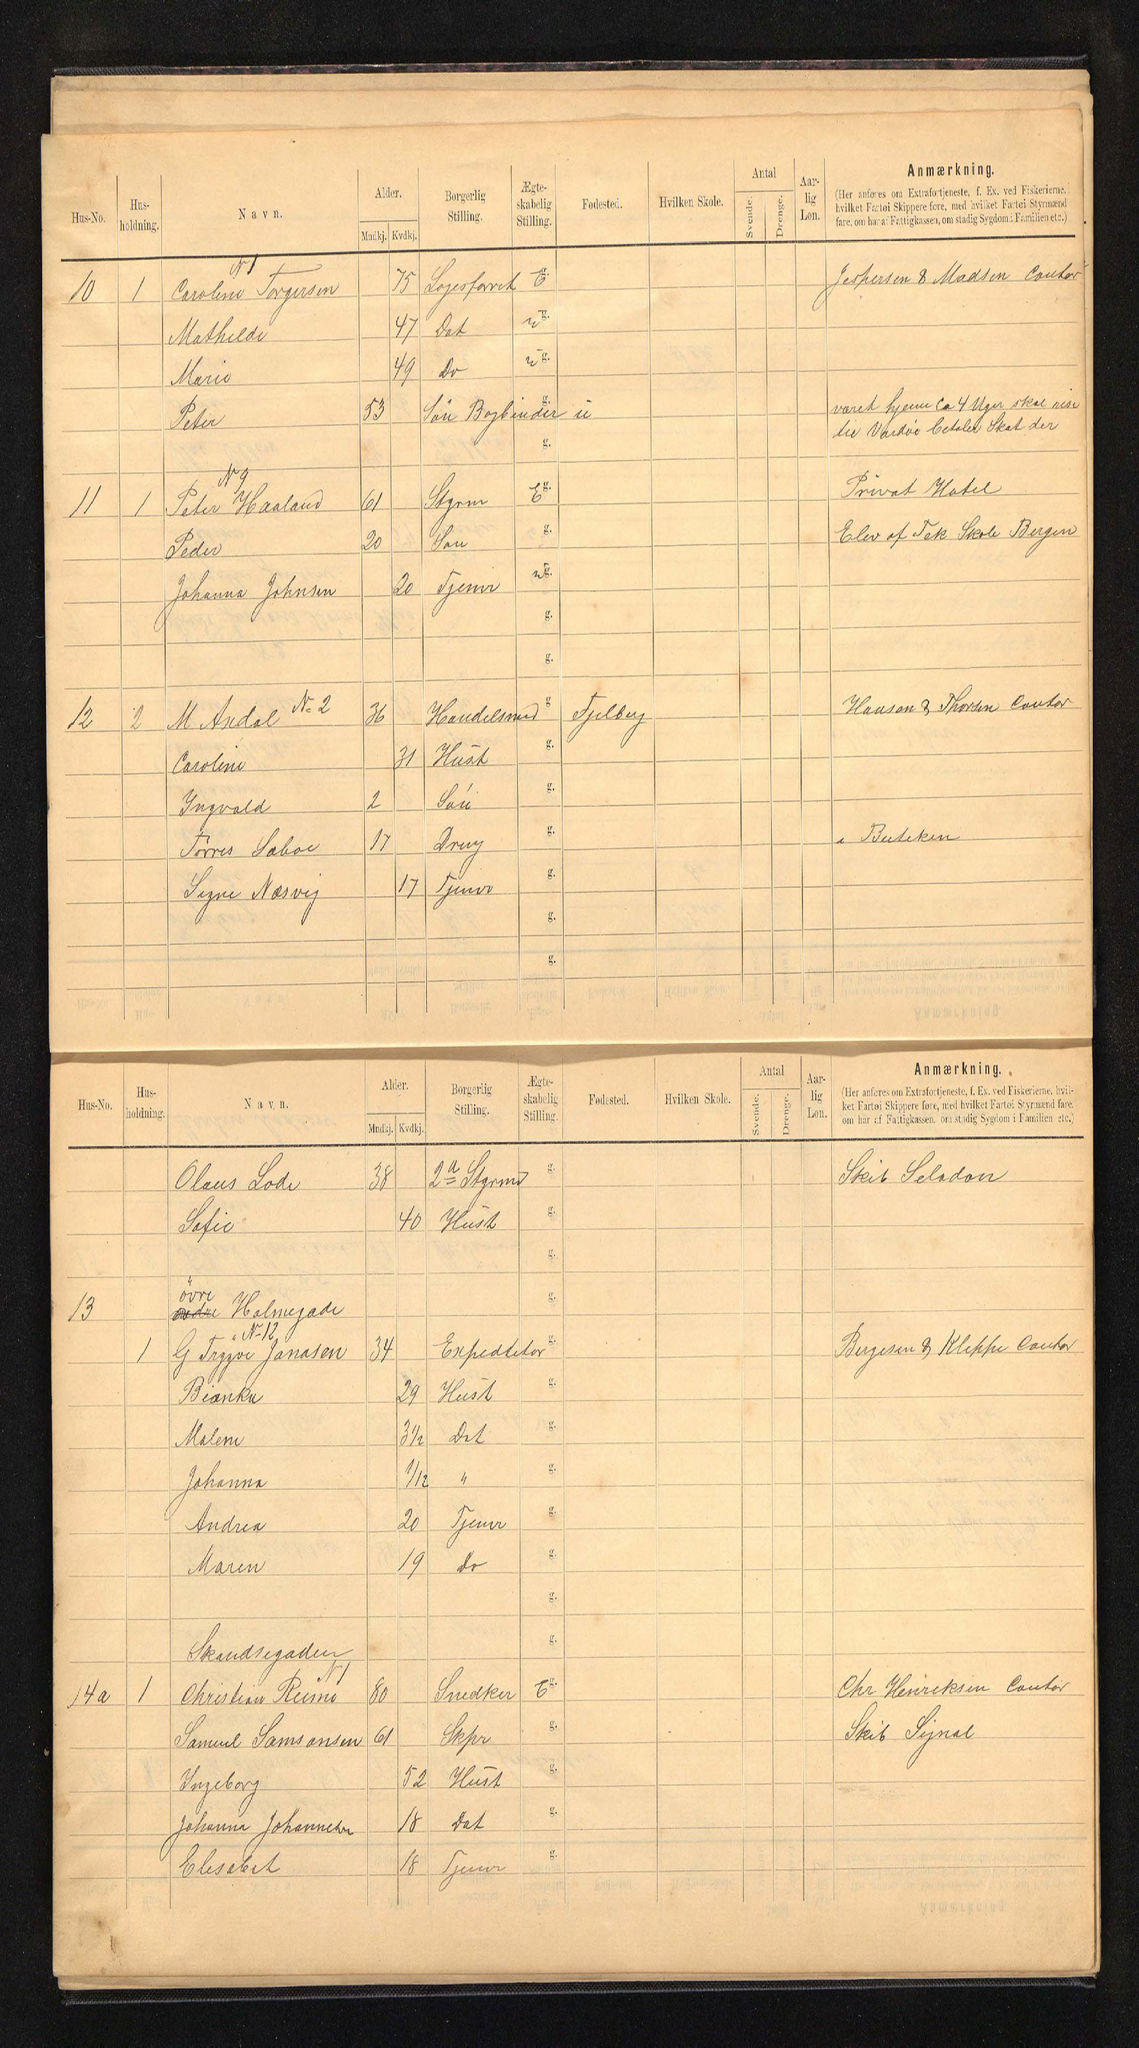 Hus-No. Hus-holdning. Navn. Alder. Mndkj. Kvdkj. Borgerlig Stilling. Ægte-skabelig Stilling. Fødested. Hvilken Skole. Antal Svende. Drenge. Aar-lig Løn. Anmærkning.
(Her anføres om Extrafortjeneste, f. Ex. ved Fiskerierne, hvilket Fartøi Skippere føre, med hvilket Fartøi Styrmænd fare, om har af Fattigkassen, om stadig Sygdom i Familien etc.)
N 1
10 1 Caroline Torgersen 75 Logesforret E g. Jespersen & Madsen Contor
Mathilde 47 Dat u g.
Marie 49 Do u g.
Peter 53 Søn Bogbinder g. u været hjemme ca 4 Uger skal reise
til Vardøe betaler Skat der
g.
N 9
11 1 Peter Haaland 61 Styrm E g. Privat Hotel
Peder 20 Søn g. Elev af Tek Skole Bergen
Johanna Johnsen 20 Tjener u g.
g.
g.
12 2 M Andal N 2 36 Handelsmd g Fjelberg Hanson & Thorsen Contor
Caroline 31 Hust g.
Ingvald 2 Søn g.
Tørres Sæboe 17 Dreng g. i Butiken
Signe Næsvig 17 Tjener g.
g.
g.
Hus-No. Hus-holdning. Navn. Alder. Mndkj. Kvdkj. Borgerlig Stilling. Ægte-skabelig Stilling. Fødested. Hvilken Skole. Antal Svende. Drenge. Aar-lig Løn. Anmærkning.
(Her anføres om Extrafortjeneste, f. Ex. ved Fiskerierne, hvilket Fartøi Skippere føre, med hvilket Fartøi Styrmænd fare, om har af Fattigkassen, om stadig Sygdom i Familien etc.)
Olaus Lode 38 2a Styrmd g. Skib Seladon
Sofie 40 Hust g.
g.
øvre
13 Holmegade g.
N 12
1 G Trygve Jonasen 34 Expeditør g. Bergesen & Kleppe Contor
Bianka 29 Hust g.
Malene 3 1/2 Dat g.
Johanna 1/12 " g.
Andrea 20 Tjener g.
Maren 19 Do g.
g.
Skandsegaden g.
N 1
14a 1 Christian Reime 80 Snedker E g. Chr Henriksen Contor
Samuel Samsonsen 61 Skpr g. Skib Signal
Ingeborg 52 Hust g.
Johanna 18 Dat g.
Elisabet 18 Tjener g.